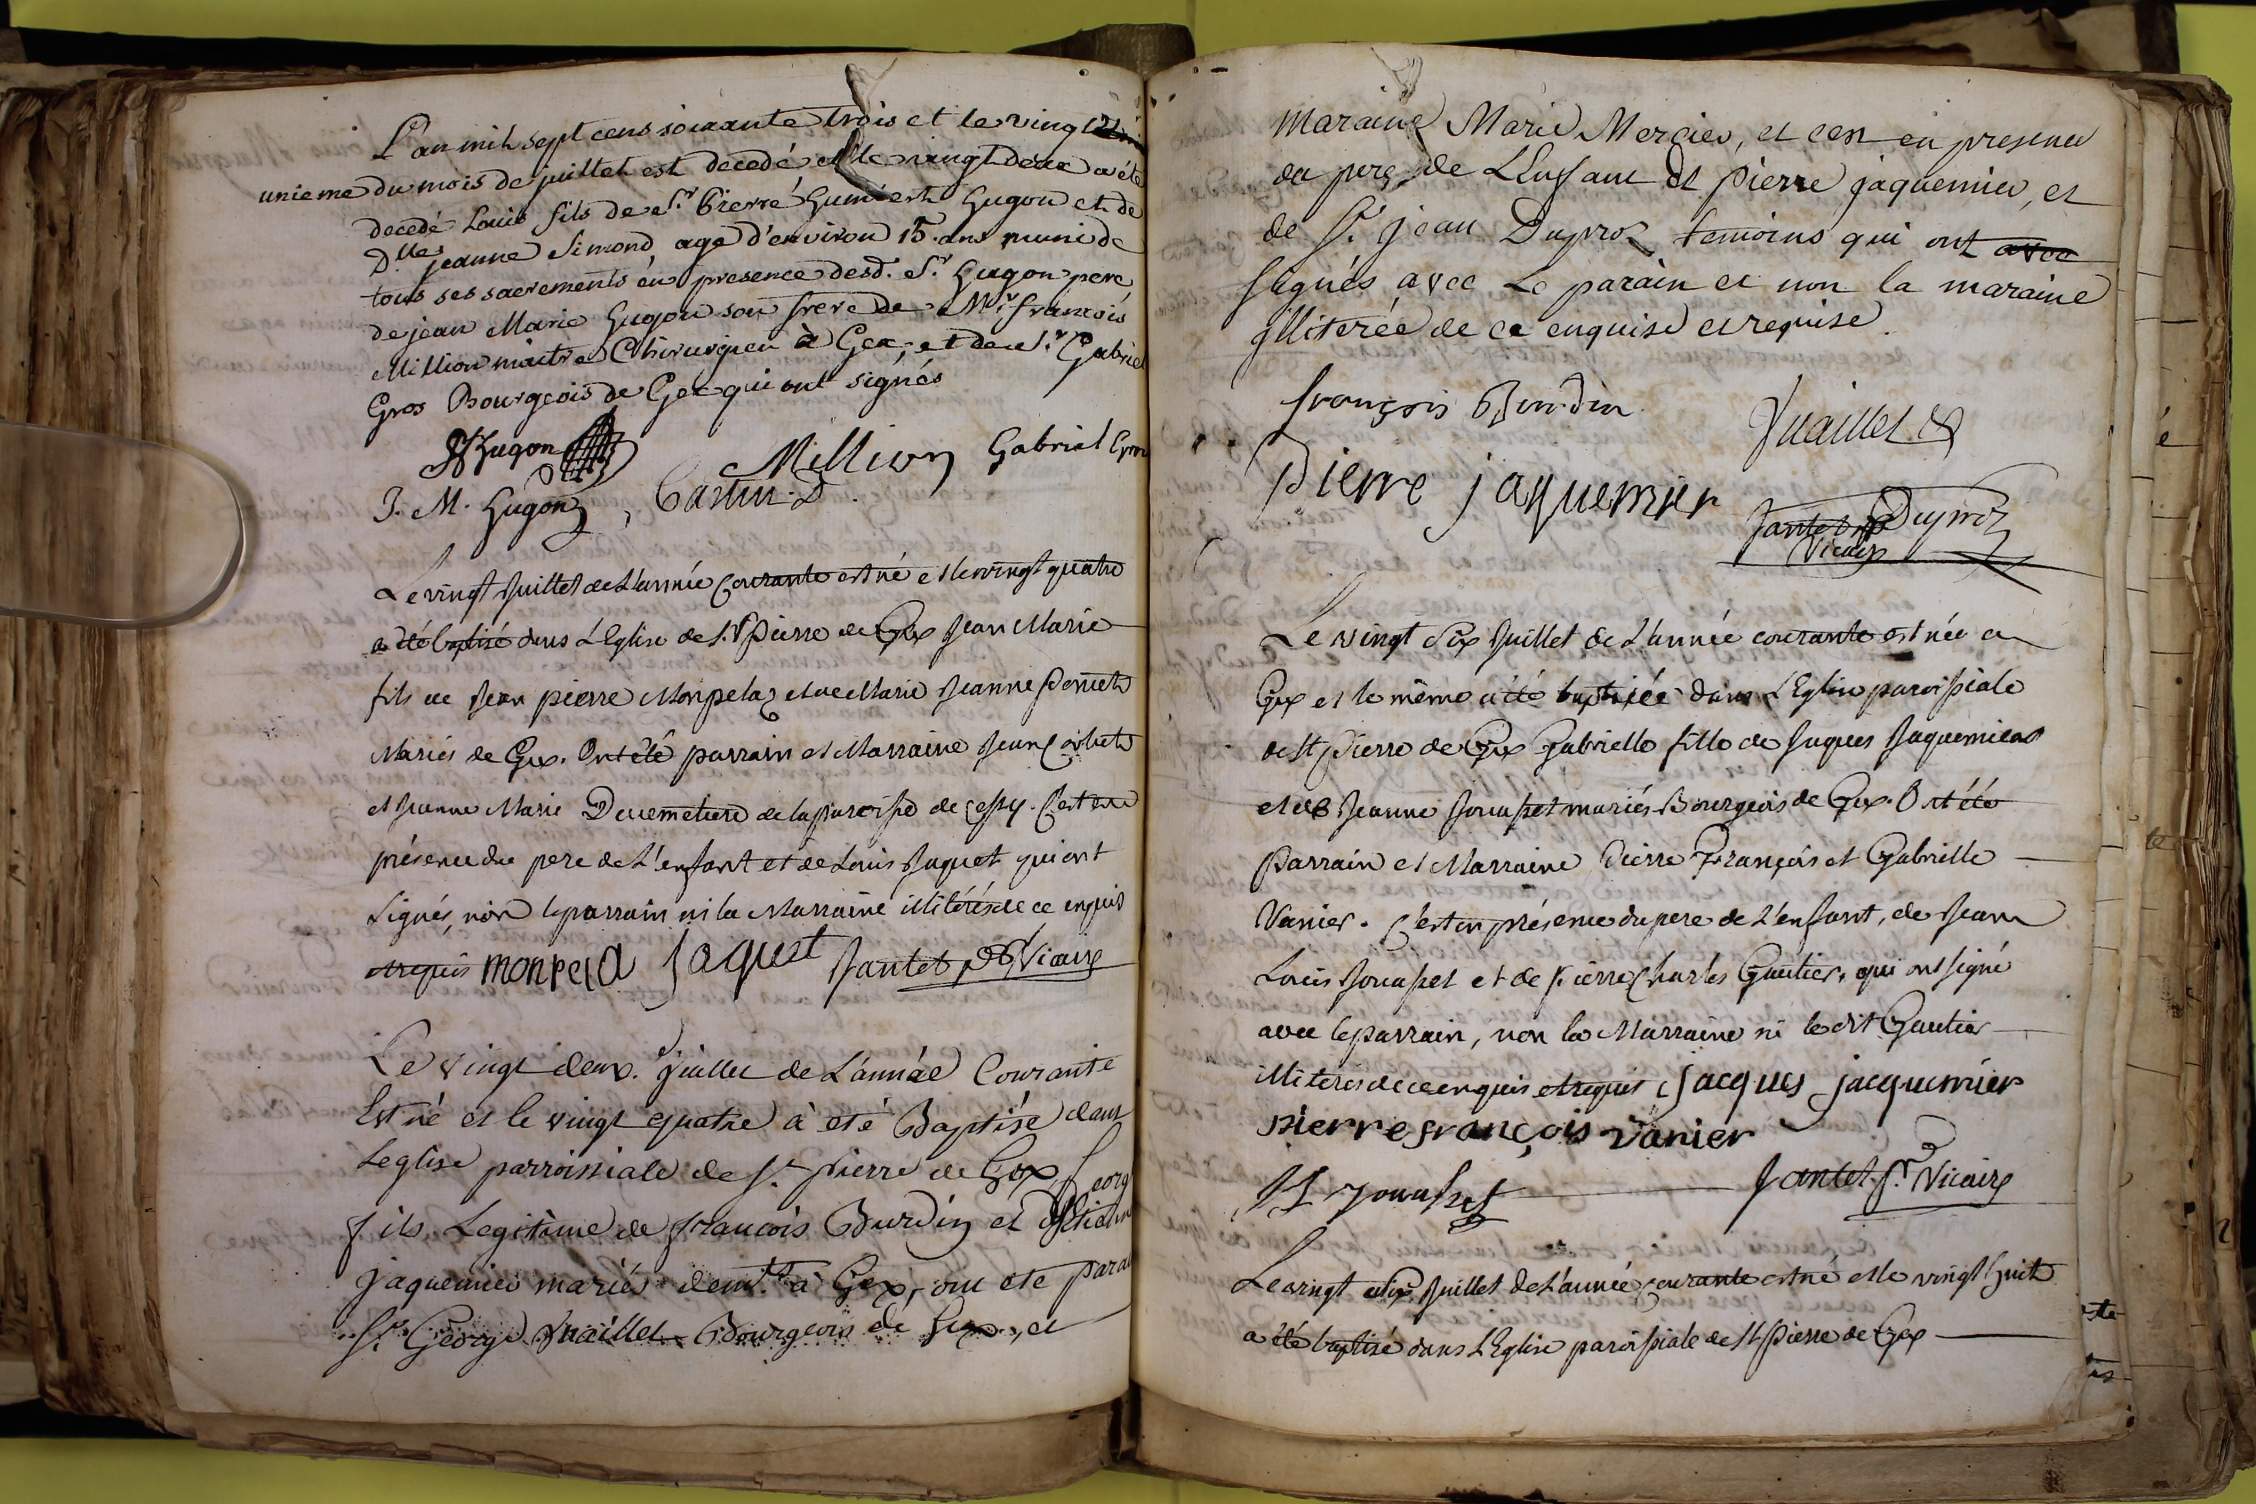 L'an mil sept cens soixante trois et le vingt
unieme du mois de juillet est decedé et le vingt deux a été
decedé Louis fils de Sr. Pierre Humbert Hugon et de
Dlle jeanne Simond agé d'environ 15. ans muni de
tous ses sacrements en presence desd. Sr. Hugon pere
de jean Marie Hugon son frere de Mr. francois
Million maitre Chirurgien à Gex, et de Sr. Gabriel
Gros Bourgeois de Gex qui ont signés
Hugon
Million Gabriel Gros
J. M. Hugon, Castin. D.
Le vingt Juillet de L'année Courante est né et le vingt quatre
a été baptisé dans L'Eglise de St. Pierre de Gex Jean Marie
fils de Jean pierre Monpelaz et de Marie Jeanne Perret
Mariés de Gex. Ont été parrain et Marraine Jean
et Jeanne Marie Ducemetiere de la paroisse de Cessy. C'est en
présence du pere de L'enfant et de Louis Jaquet qui ont
signés, non le parrain ni la Marraine illiterés de ce enquis
et requis monpela jaquet Jantet pr Vicaire
Le vingt deux. juillet de L'année Courante
Est né et le vingt quatre à eté Baptisé dans
Leglise parroissiale de St. pierre de Gex George
fils Legitime de francois Burdin et
jaquemier mariés demts. à Gex, ont ete parain
Sr. George Vuaillet Bourgeois de Gex, et
maraine Marie Mercier, et cest en presence
du pere de L'Enfant dt pierre jaquemier, et
de Sr. jean Duproz temoins qui ont avec
signés avec Le parain et non la maraine
illiterée de ce enquise et requise.
françois Burdin
Vuaillet
pierre jaquemier
Jantet pr Duproz
Vicaire
Le vingt Six Juillet de L'année courante est née a
Gex et le même a été baptisée dans L'Eglise paroissiale
de St Pierre de Gex Gabrielle fille de Jaques Jaquemier
et de Jeanne Jouasset mariés Bourgeois de Gex. Ont été
Parrain et Marraine Pierre François et Gabrielle
Vanier. C'est en présence du pere de L'enfant, de Jean
Louis Jouasset et de Pierre Charles Gautier, qui ont signé
avec le parrain, non la Marraine ni le dit Gautier
illiterés de ce enquis et requis jacques jacquemier
pierre françois vanier
JL Jouasset Jantet pr. Vicaire
Le vingt Six Juillet de L'année courante est né et le vingt huit
a été baptisé dans L'Eglise paroissiale de St Pierre de Gex